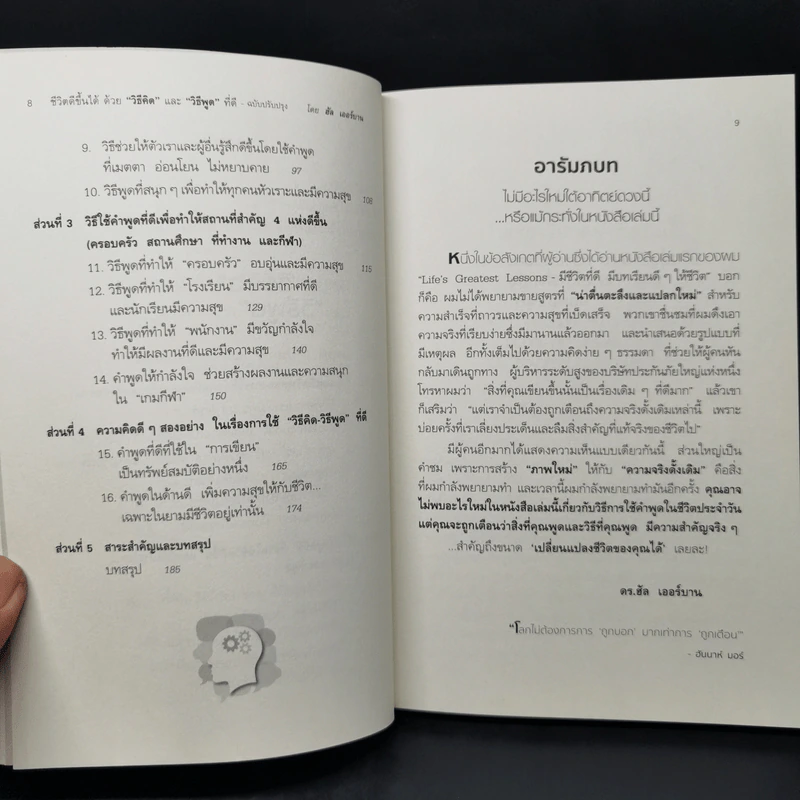 8 ชีวิตดีขึ้นได้ ด้วย "วิธีคิด" และ "วิธีพูด" ที่ดี - ฉบับปรับปรุง โดย ฮัล เออร์บาน
9. วิธีช่วยให้ตัวเราและผู้อื่นรู้สึกดีขึ้นโดยใช้คำพูด
ที่เมตตา อ่อนโยน ไม่หยาบคาย 97
10. วิธีพูดที่สนุก ๆ เพื่อทำให้ทุกคนหัวเราะและมีความสุข 108
ส่วนที่ 3 วิธีใช้คำพูดที่ดีเพื่อทำให้สถานที่สำคัญ 4 แห่งดีขึ้น
(ครอบครัว สถานศึกษา ที่ทำงาน และกีฬา)
11. วิธีพูดที่ทำให้ "ครอบครัว" อบอุ่นและมีความสุข 115
12. วิธีพูดที่ทำให้ "โรงเรียน" มีบรรยากาศที่ดี
และนักเรียนมีความสุข 129
13. วิธีพูดที่ทำให้ "พนักงาน" มีขวัญกำลังใจ
ทำให้มีผลงานที่ดีและมีความสุข 140
14. คำพูดให้กำลังใจ ช่วยสร้างผลงานและความสนุก
ใน "เกมกีฬา" 150
ส่วนที่ 4 ความคิดดี ๆ สองอย่าง ในเรื่องการใช้ "วิธีคิด-วิธีพูด" ที่ดี
15. คำพูดที่ดีที่ใช้ใน "การเขียน"
เป็นทรัพย์สมบัติอย่างหนึ่ง 165
16. คำพูดในด้านดี เพิ่มความสุขให้กับชีวิต...
เฉพาะในยามมีชีวิตอยู่เท่านั้น 174
ส่วนที่ 5 สาระสำคัญและบทสรุป
บทสรุป 185
9
อารัมภบท
ไม่มีอะไรใหม่ใต้อาทิตย์ดวงนี้
...หรือแม้กระทั่งในหนังสือเล่มนี้
หนึ่งในข้อสังเกตที่ผู้อ่านซึ่งได้อ่านหนังสือเล่มแรกของผม
"Life's Greatest Lessons - มีชีวิตที่ดี มีบทเรียนดี ๆ ให้ชีวิต" บอก
ก็คือ ผมไม่ได้พยายามขายสูตรที่ "น่าตื่นตะลึงและแปลกใหม่" สำหรับ
ความสำเร็จที่ถาวรและความสุขที่เบ็ดเสร็จ พวกเขาชื่นชมที่ผมดึงเอา
ความจริงที่เรียบง่ายซึ่งมีมานานแล้วออกมา และนำเสนอด้วยรูปแบบที่
มีเหตุผล อีกทั้งเต็มไปด้วยความคิดง่าย ๆ ธรรมดา ที่ช่วยให้ผู้คนหัน
กลับมาเดินถูกทาง ผู้บริหารระดับสูงของบริษัทประกันภัยใหญ่แห่งหนึ่ง
โทรหาผมว่า "สิ่งที่คุณเขียนขึ้นนั้นเป็นเรื่องเดิม ๆ ที่ดีมาก" แล้วเขา
ก็เสริมว่า "แต่เราจำเป็นต้องถูกเตือนถึงความจริงดั้งเดิมเหล่านี้ เพราะ
บ่อยครั้งที่เราเลี่ยงประเด็นและลืมสิ่งสำคัญที่แท้จริงของชีวิตไป"
มีผู้คนอีกมากได้แสดงความเห็นแบบเดียวกันนี้ ส่วนใหญ่เป็น
คำชม เพราะการสร้าง "ภาพใหม่" ให้กับ "ความจริงดั้งเดิม" คือสิ่ง
ที่ผมกำลังพยายามทำ และเวลานี้ผมกำลังพยายามทำมันอีกครั้ง คุณอาจ
ไม่พบอะไรใหม่ในหนังสือเล่มนี้เกี่ยวกับวิธีการใช้คำพูดในชีวิตประจำวัน
แต่คุณจะถูกเตือนว่าสิ่งที่คุณพูดและวิธีที่คุณพูด มีความสำคัญจริง ๆ
...สำคัญถึงขนาด 'เปลี่ยนแปลงชีวิตของคุณได้' เลยละ!
ดร.ฮัล เออร์บาน
"โลกไม่ต้องการการ 'ถูกบอก' มากเท่าการ 'ถูกเตือน'"
- ฮันนาห์ มอร์